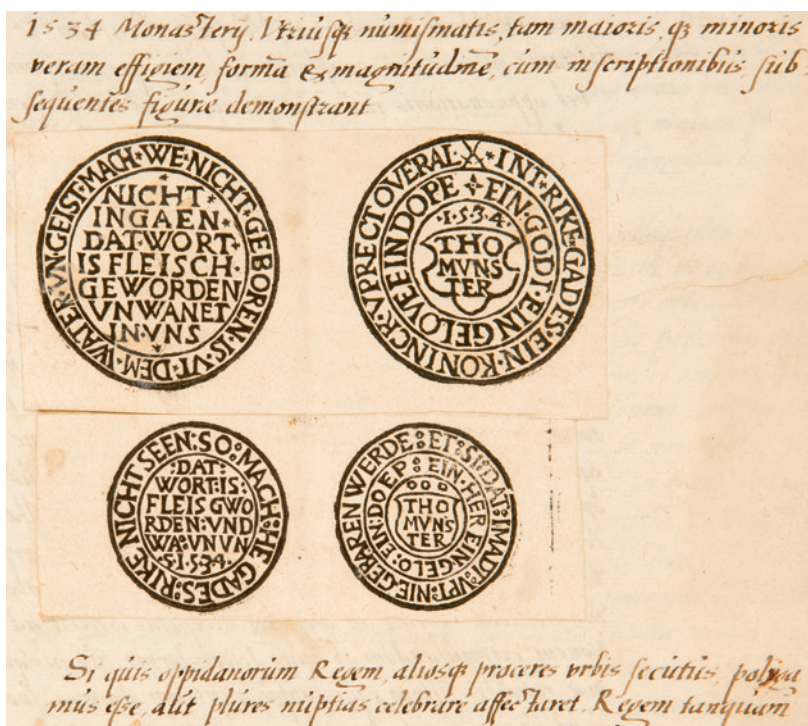 1534 Monasterij. Vtriusq; numismatis, tam maioris, q̃ minoris
veram effigiem, formã & magnitudinẽ, cum inscriptionibus, sub
sequentes figuræ demonstrant
WE·NICHT·GEBOREN·IS·VT·DEM·WATER·VN·GEIST·MACH·
NICHT
INGAEN·
DAT·WORT·
IS FLEISCH·
GEWORDEN
VN WANET
IN·VNS
INT·RIKE·GADES·EIN·KONINCK·VPRECT OVERAL
EIN·GODT·EIN GELOVE EIN DOPE
·1·5·3·4·
THO
MVNS
TER
SO:MACH:HIE GADES:RIKE NICHT SEEN:
:DAT:
WORT:IS:
FLEIS GWO
RDEN:VND
WA:VN VN
S·1·5·3·4·
ET:SI:DAT:IMADT:VPT:NIE:GEBAREN WERDE:
EIN·HER EIN:GELO:EIN:DOEP:
THO
MVNS
TER
Si quis oppidanorum Regem, aliosq; proceres vrbis secutus, poliga
mus esse, aut plures nuptias celebrare affectaret. Regem tanquam